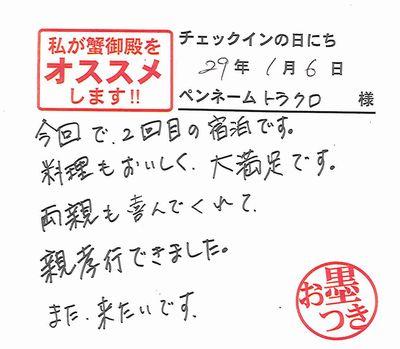 私が蟹御殿を
オススメ
します!!
チェックインの日にち
29年 1月 6日
ペンネーム トラクロ 様
今回で、2回目の宿泊です。
料理もおいしく、大満足です。
両親も喜んでくれて、
親孝行できました。
また、来たいです。
お墨つき